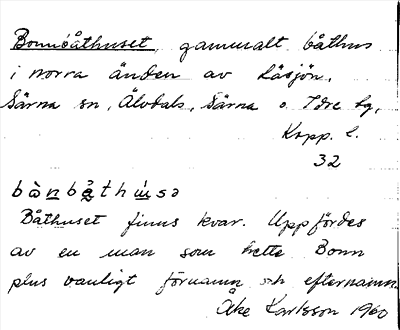 Bonnbåthuset, gammalt båthus
i norra änden av Läsjön,
Särna sn, Älvdals, Särna o. Idre tg,
Kopp. l.
32
bὰnbåthu̇sə
Båthuset finns kvar. Uppfördes
av en man som hette Bonn
plus vanligt förnamn och efternamn.
Åke Karlsson 1960